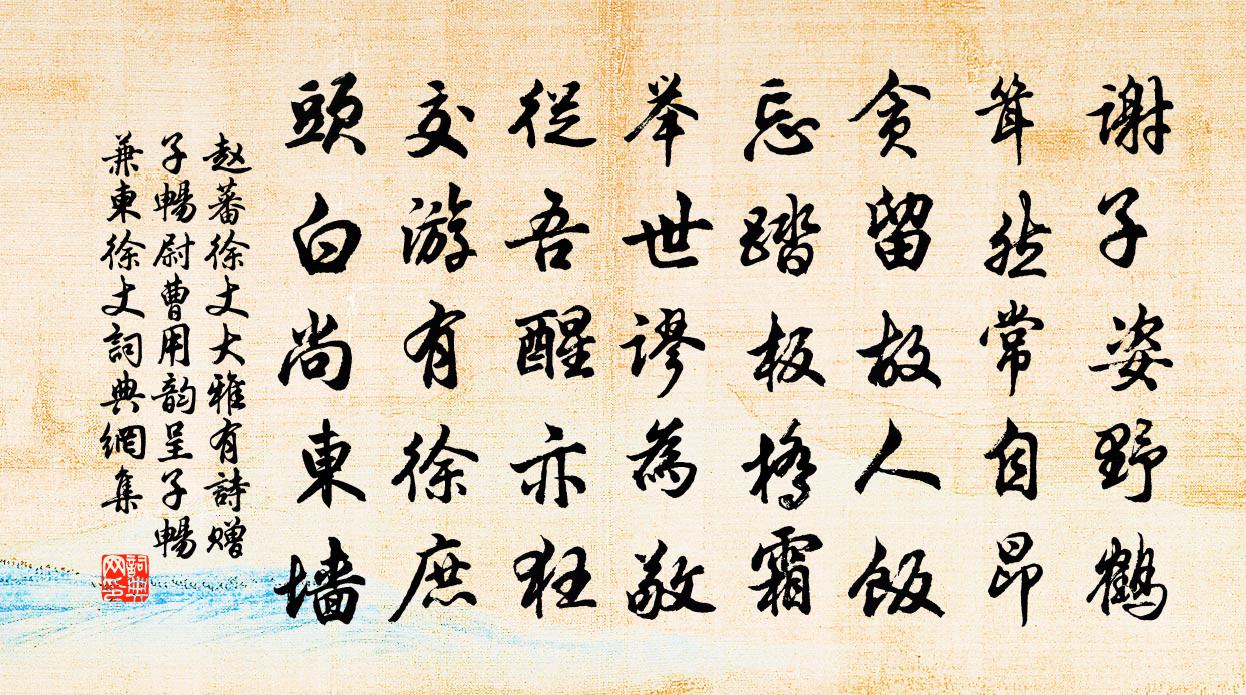 謝子姿野鶴
茸然常自昂
贪留故人飯
忘踏板橋霜
举世謬為敬
從吾醒亦狂
交游有徐庶
頭白尚東墙
赵蕃徐丈大雅有詩赠
子暢尉曹用韵呈子暢
兼東徐丈詞典網集
詞典